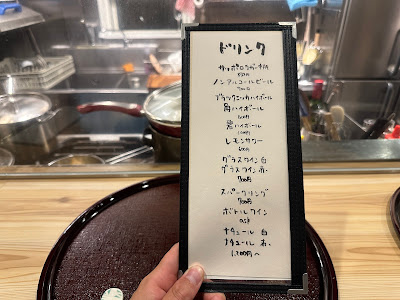 ドリンク
サッポロラガービール
ノンアルコールビール
ブラックニッカハイボール
角ハイボール
ハイボール
レモンサワー
グラスワイン 白
グラスワイン 赤
700円
スパークリング
700円
ボトルワイン
ask
ナチュール 白
ナチュール 赤
1,200円〜